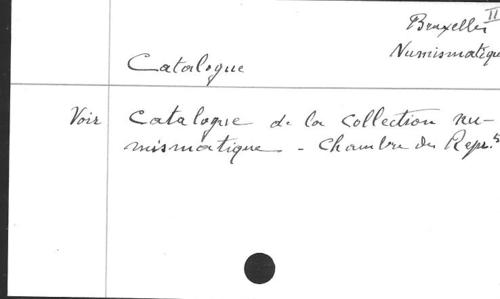 Bruxelles II
Numismatique
Catalogue
Voir Catalogue de la Collection nu-
mismatique - Chambre des Repr.s